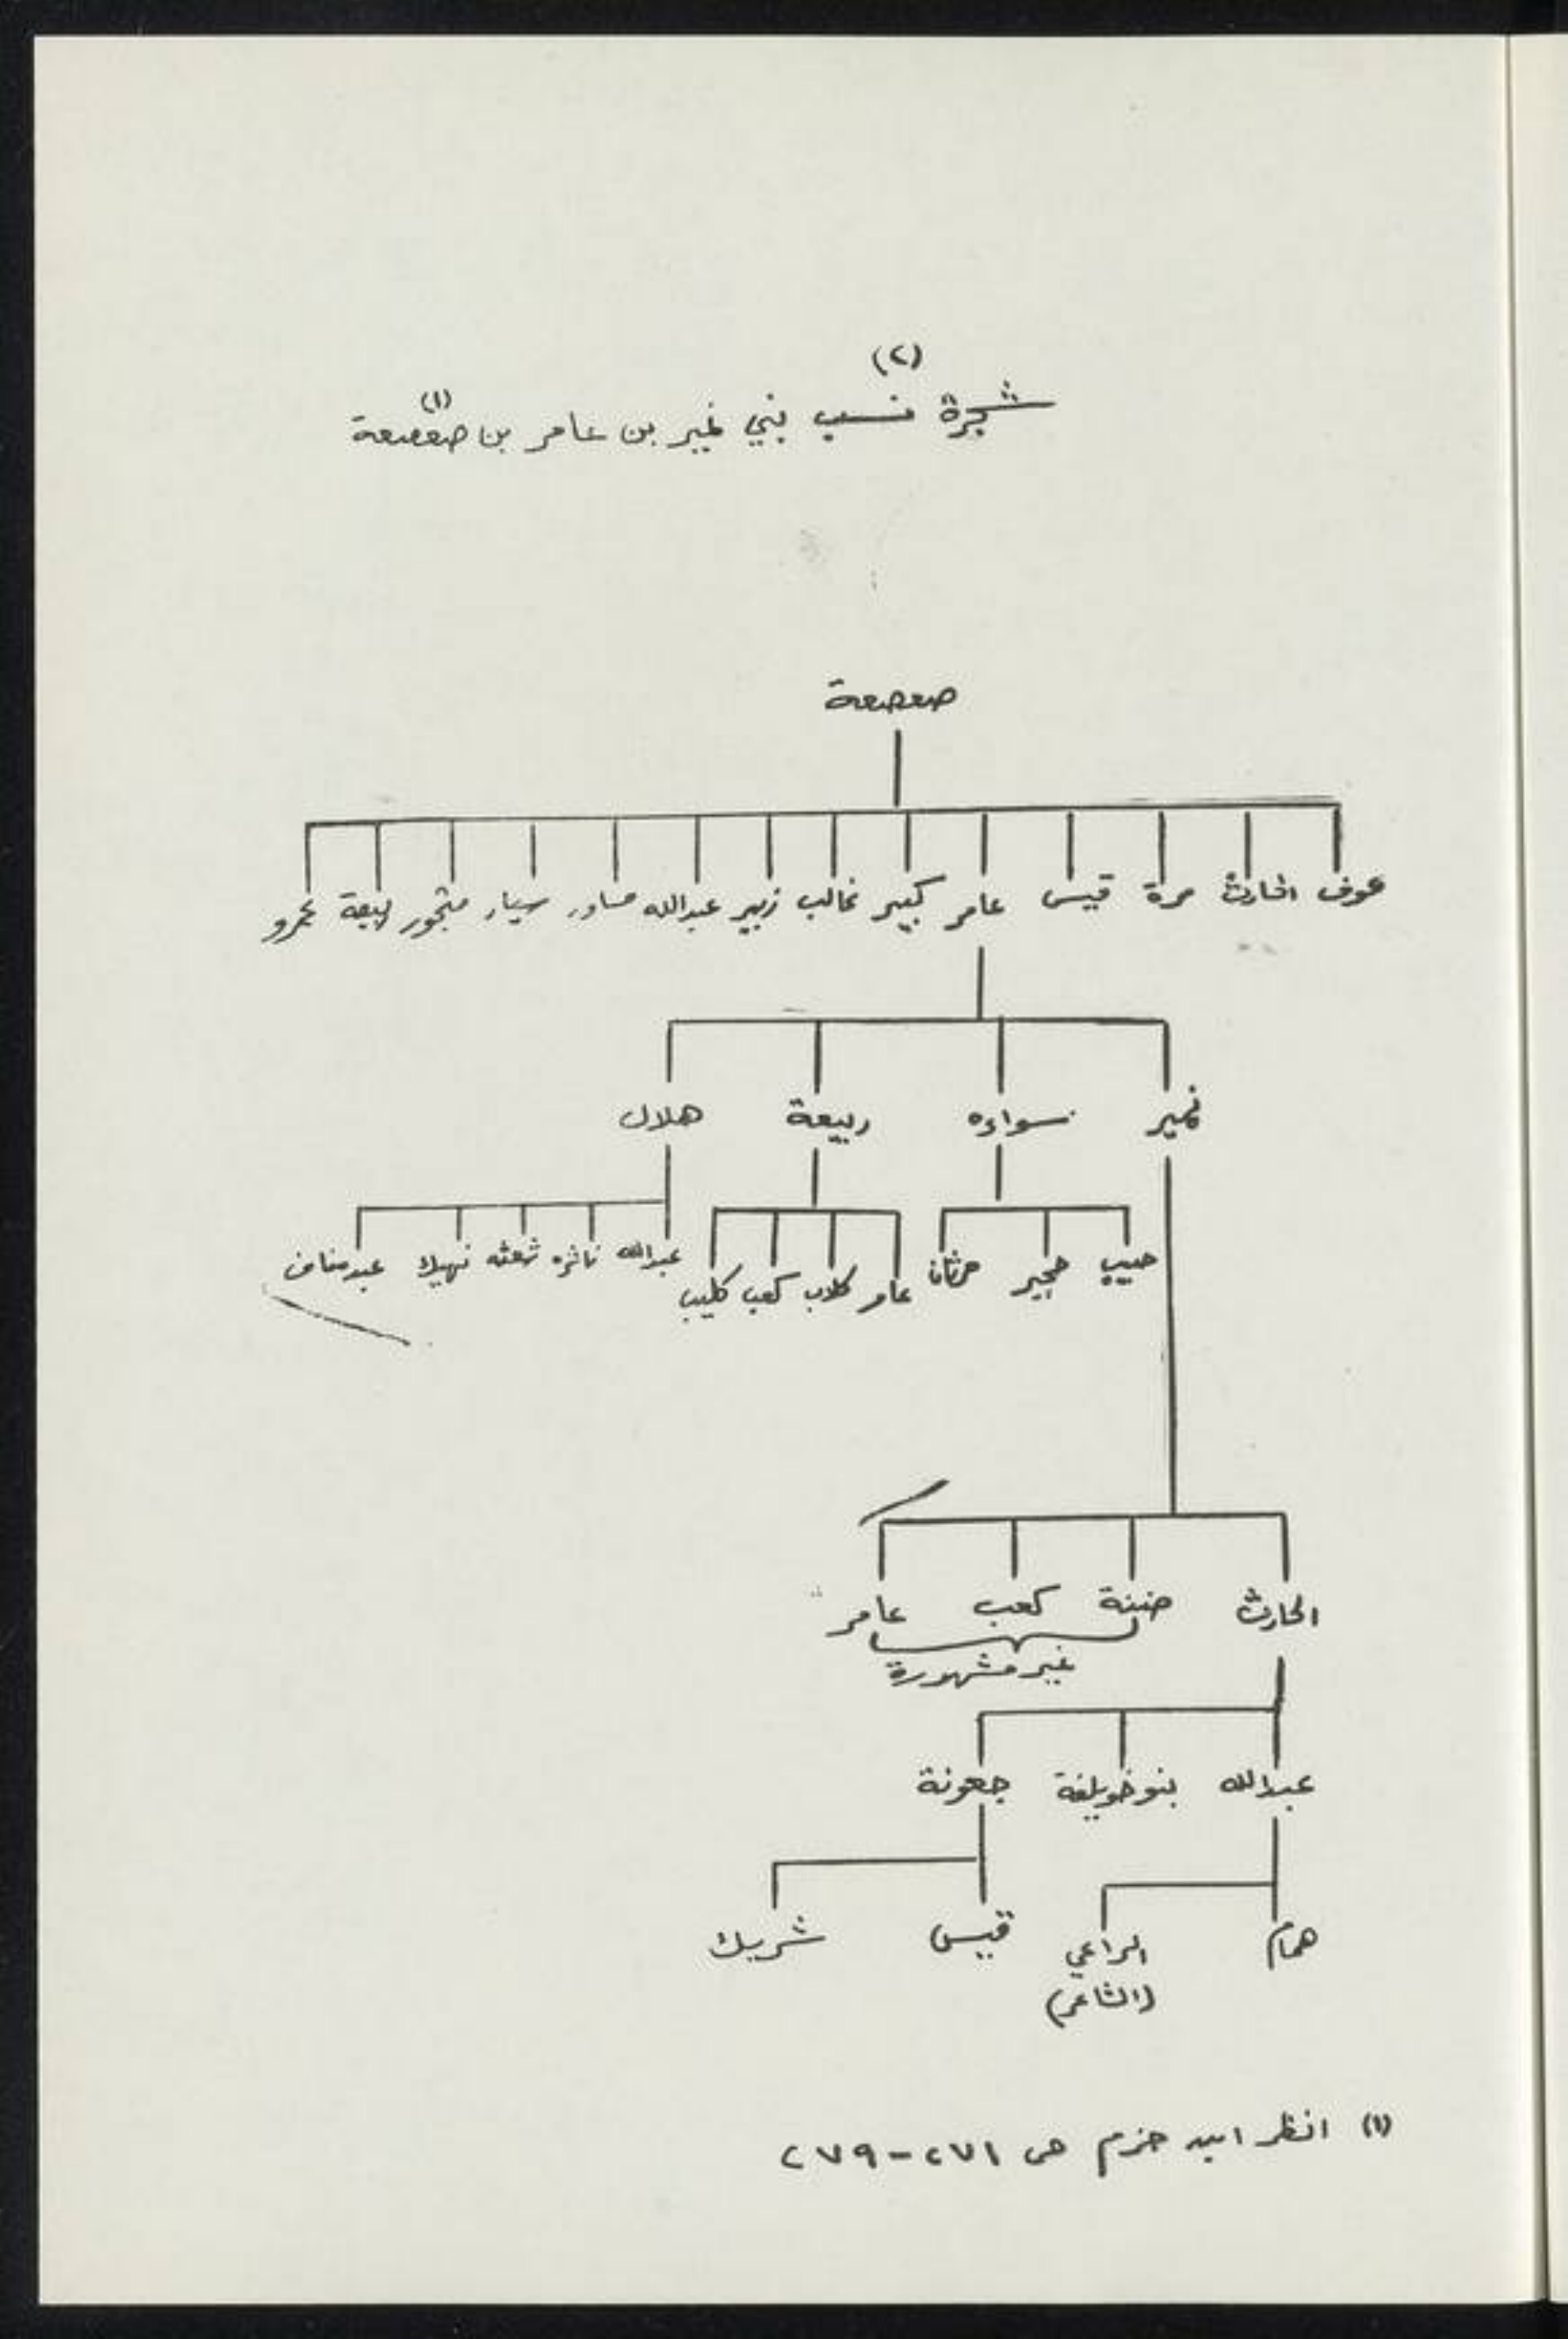 (٢)
شجرة نسب بني نمير بن عامر بن صعصعة (١)
صعصعة
عوف الحارث مرة قيس عامر كبير غالب زبير عبدالله مساور سيار مثجور ربيعة عمرو
نمير سواءه ربيعة هلال
حبيب حجير حرثان عامر كلاب كعب كليب عبدالله ناشره شعثه نهيك عبد مناف
الحارث ضننة كعب عامر
غير مشهورة
عبدالله بنو خويلفة جعونة
همام الراعي قيس شريك
(الشاعر)
(١) انظر ابن حزم ص ٢٧١-٢٧٩